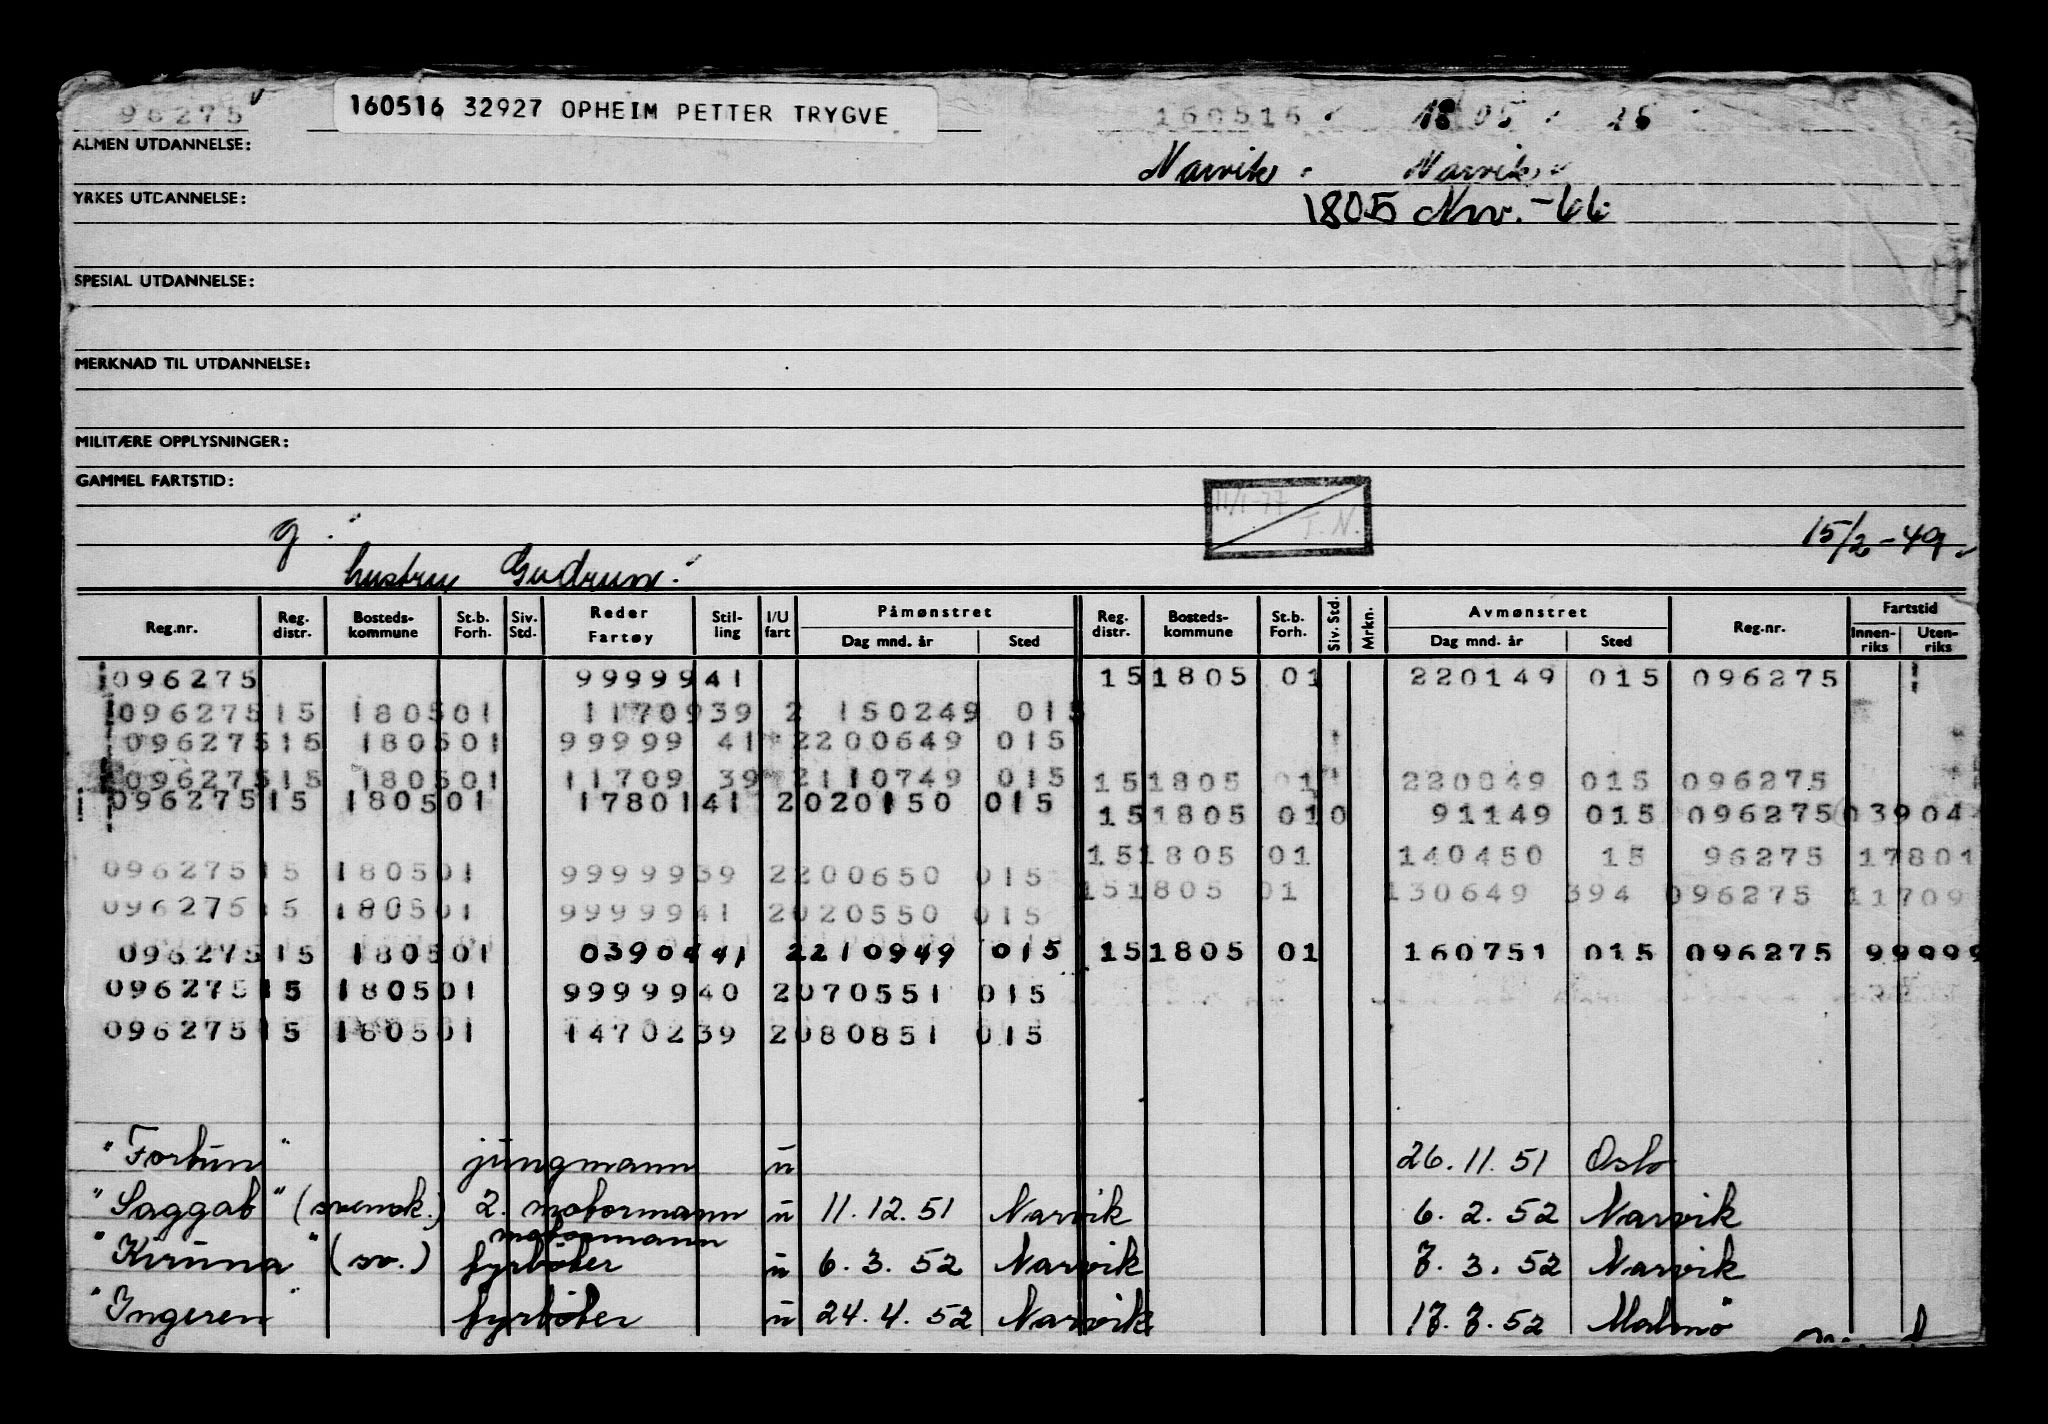 96275
160516 32927 OPHEIM PETTER TRYGVE
160516
18 05
ALMEN UTDANNELSE:
Narvik Narvik
YRKES UTDANNELSE:
1805 Nrv. -66
SPESIAL UTDANNELSE:
MERKNAD TIL UTDANNELSE:
MILITÆRE OPPLYSNINGER:
GAMMEL FARTSTID:
11/1-77
T. N.
g.
15/2-49.
hustru Gudrun.
Reg.nr. Reg. distr. Bosteds-kommune St.b. Forh. Siv. Std. Reder Fartøy Stil-ling I/U fart Påmønstret Dag mnd. år Sted Reg. distr. Bosteds-kommune St.b. Forh. Siv. Std. Mrkn. Avmønstret Dag mnd. år Sted Reg.nr. Fartstid Innen-riks Uten-riks
096275 99999 41 15 1805 01 220149 015 096275
096275 15 1805 01 11709 39 2 150249 015
096275 15 1805 01 99999 41 2 200649 015
096275 15 1805 01 11709 39 2 110749 015 15 1805 01 220849 015 096275
096275 15 1805 01 17801 41 2 020150 015 15 1805 01 0 91149 015 096275 03904
15 1805 01 140450 15 96275 17801
096275 15 1805 01 99999 39 2 200650 015 15 1805 01 130649 394 096275 11709
096275 15 1805 01 99999 41 2 020550 015
096275 15 1805 01 03904 41 2 210949 015 15 1805 01 160751 015 096275 99999
096275 15 1805 01 99999 40 2 070551 015
096275 15 1805 01 14702 39 2 080851 015
"Fortun" jungmann u 26.11.51 Oslo
"Saggat" (svensk.) 2. motormann u 11.12.51 Narvik 6.2.52 Narvik
motormann
"Kiruna" (sv.) fyrbøter u 6.3.52 Narvik 7.3.52 Narvik
"Ingeren" fyrbøter u 24.4.52 Narvik 17.7.52 Malmö